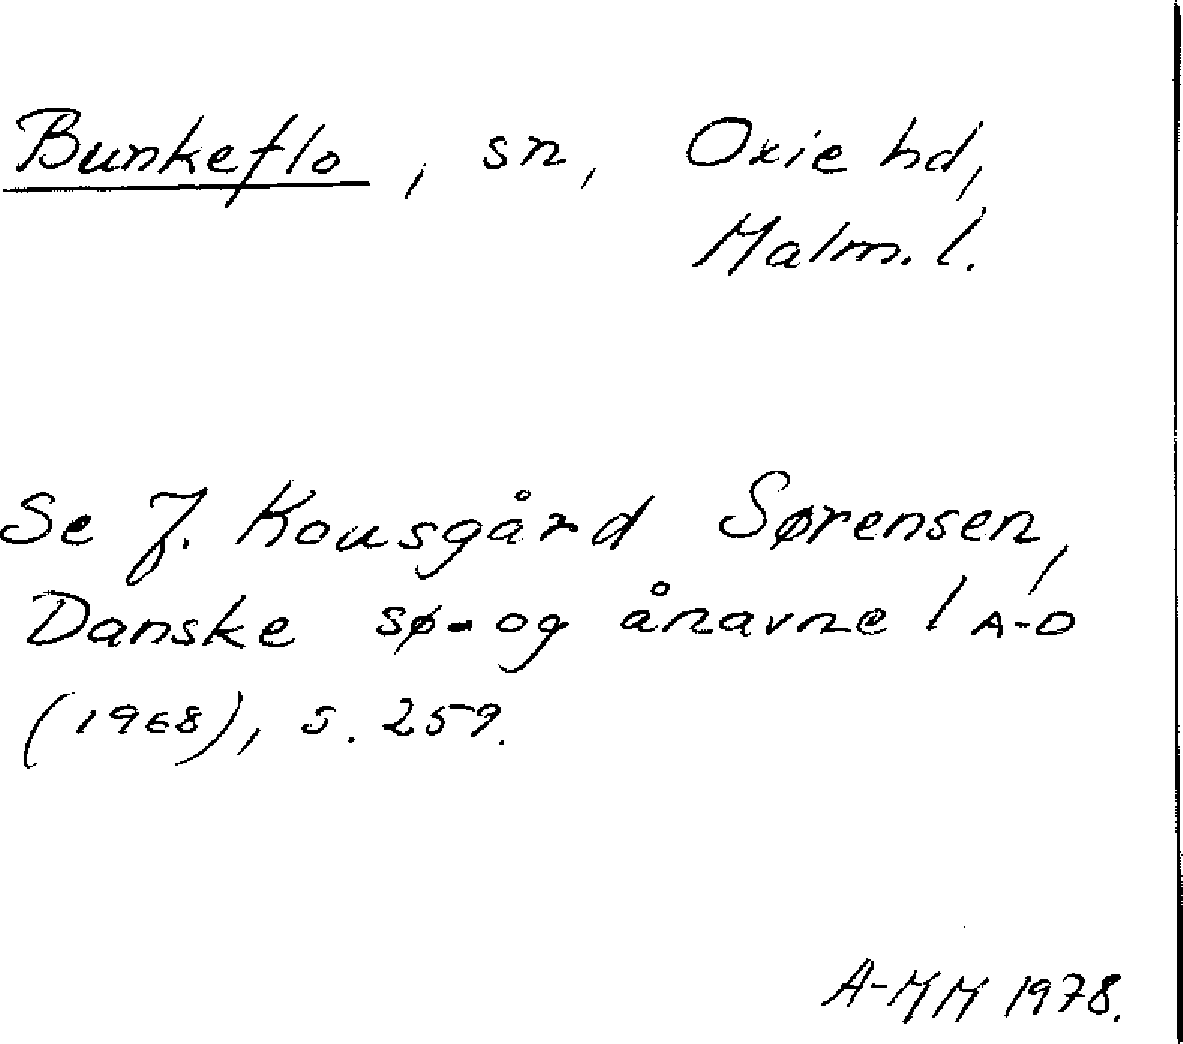 Bunkeflo, sn, Oxie hd,
Malm. l.
Se J. Kousgård Sørensen,
Danske sø- og ånavne I A-D
(1968), s. 259.
A-MM 1978.